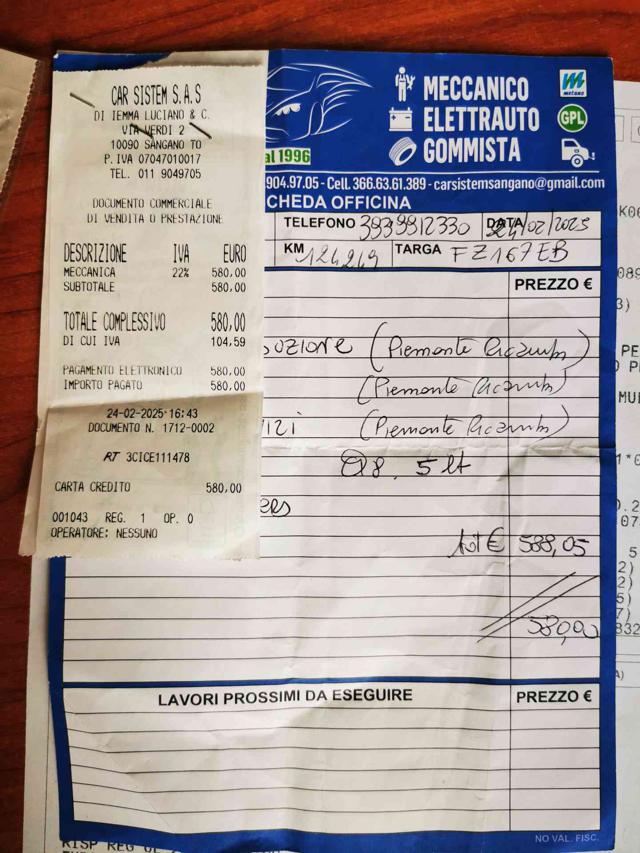 CAR SISTEM S.A.S
DI IEMMA LUCIANO & C.
VIA VERDI 2
10090 SANGANO TO
P.IVA 07047010017
TEL. 011 9049705
DOCUMENTO COMMERCIALE
DI VENDITA O PRESTAZIONE
DESCRIZIONE IVA EURO
MECCANICA 22% 580,00
SUBTOTALE 580,00
TOTALE COMPLESSIVO 580,00
DI CUI IVA 104,59
PAGAMENTO ELETTRONICO 580,00
IMPORTO PAGATO 580,00
24-02-2025 16:43
DOCUMENTO N. 1712-0002
RT 3CICE111478
CARTA CREDITO 580,00
001043 REG. 1 OP. 0
OPERATORE: NESSUNO
MECCANICO
ELETTRAUTO
GOMMISTA
metano
GPL
al 1996
904.97.05 - Cell. 366.63.61.389 - carsistemsangano@gmail.com
CHEDA OFFICINA
TELEFONO 3939912330 DATA 24/02/2025
KM 124249 TARGA FZ167EB
PREZZO €
UZIONE (Piemonte Ricambi)
(Piemonte Ricambi)
IZI (Piemonte Ricambi)
Q8. 5 lt
ERS
tot € 588,05
580,00
LAVORI PROSSIMI DA ESEGUIRE PREZZO €
NO VAL. FISC.